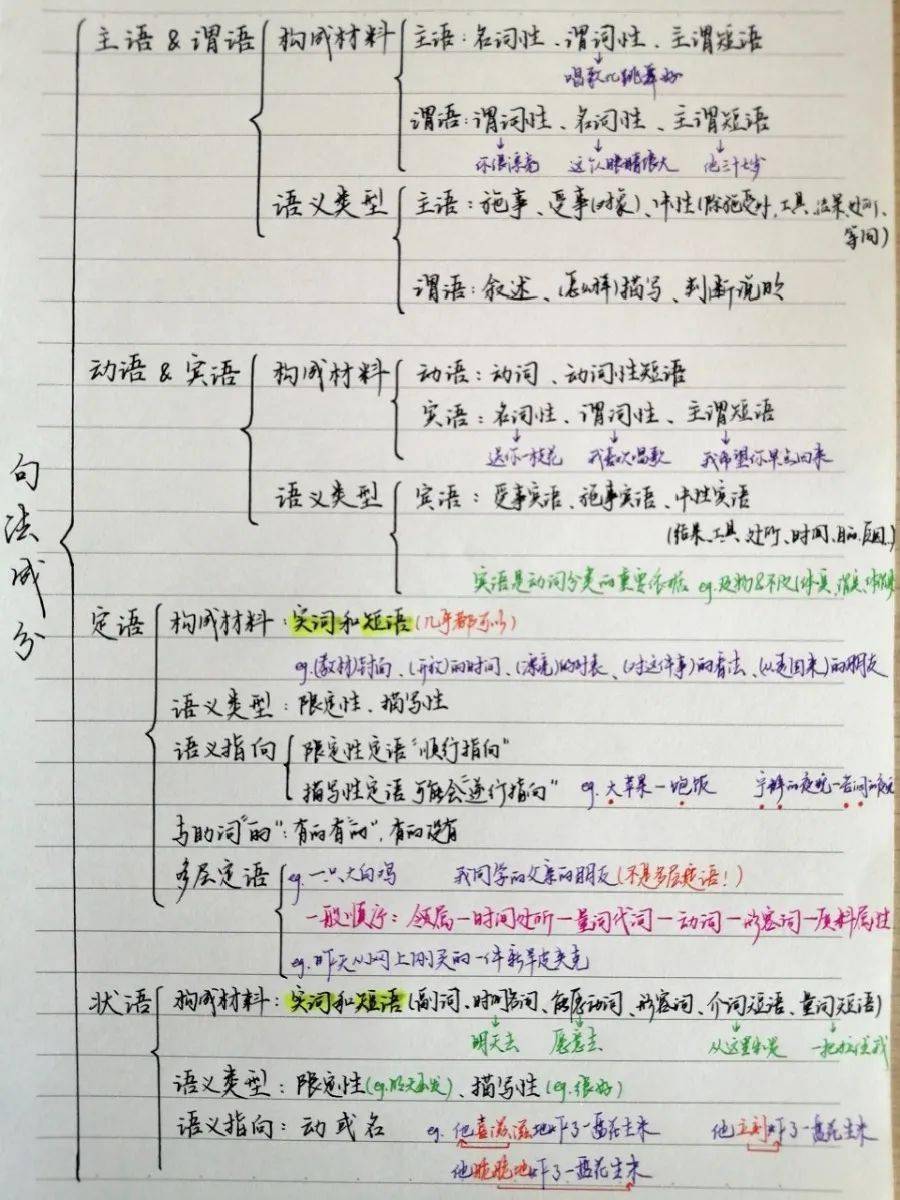 句法成分
主语 & 谓语
构成材料
主语：名词性、谓词性、主谓短语
唱歌比跳舞好
谓语：谓词性、名词性、主谓短语
你很漂亮 这人眼睛很大 他三十七岁
语义类型
主语：施事、受事(对象)、中性(除施受外,工具、结果、处所、
等同)
谓语：叙述、(怎么样)描写、判断说明
动语 & 宾语
构成材料
动语：动词、动词性短语
宾语：名词性、谓词性、主谓短语
送你一枝花 我喜欢唱歌 我希望你早点回来
语义类型
宾语：受事宾语、施事宾语、中性宾语
(结果、工具、处所、时间、目的、原因)
宾语是动词分类的重要依据 eg.及物&不及
定语
构成材料：实词和短语(几乎都可以)
eg.(教材)封面、(开放)的时间、(漂亮)的 、(对这件事)的看法、(从美回来)的朋友
语义类型：限定性、描写性
语义指向
限定性定语"顺行指向"
描写性定语可能会"逆行指向" eg. 大苹果—饱饭 宁静的夜晚—苦闷的夜晚
与助词"的"：有的有"的"，有的没有
多层定语
eg.一只大白鸡 我同学的父亲的朋友(不是多层定语！)
一般顺序：领属—时间处所—量词代词—动词—形容词—质料属性
eg.昨天从网上刚买的一件新羊皮夹克
状语
构成材料：实词和短语(副词、时间名词、能愿动词、形容词、介词短语、量词短语)
明天去 愿意去 从这里出发 一把拉住我
语义类型：限定性(eg.明天出发)、描写性(eg.很好)
语义指向：动或名 eg. 他喜滋滋地炸了一盘花生米 他立刻炸了一盘花生米
他脆脆地炸了一盘花生米